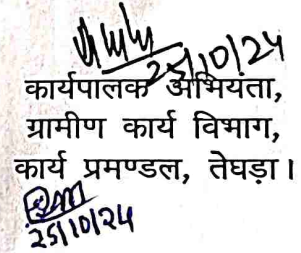 25/10/24
कार्यपालक अभियता,
ग्रामीण कार्य विभाग,
कार्य प्रमण्डल, तेघड़ा।
25/10/24